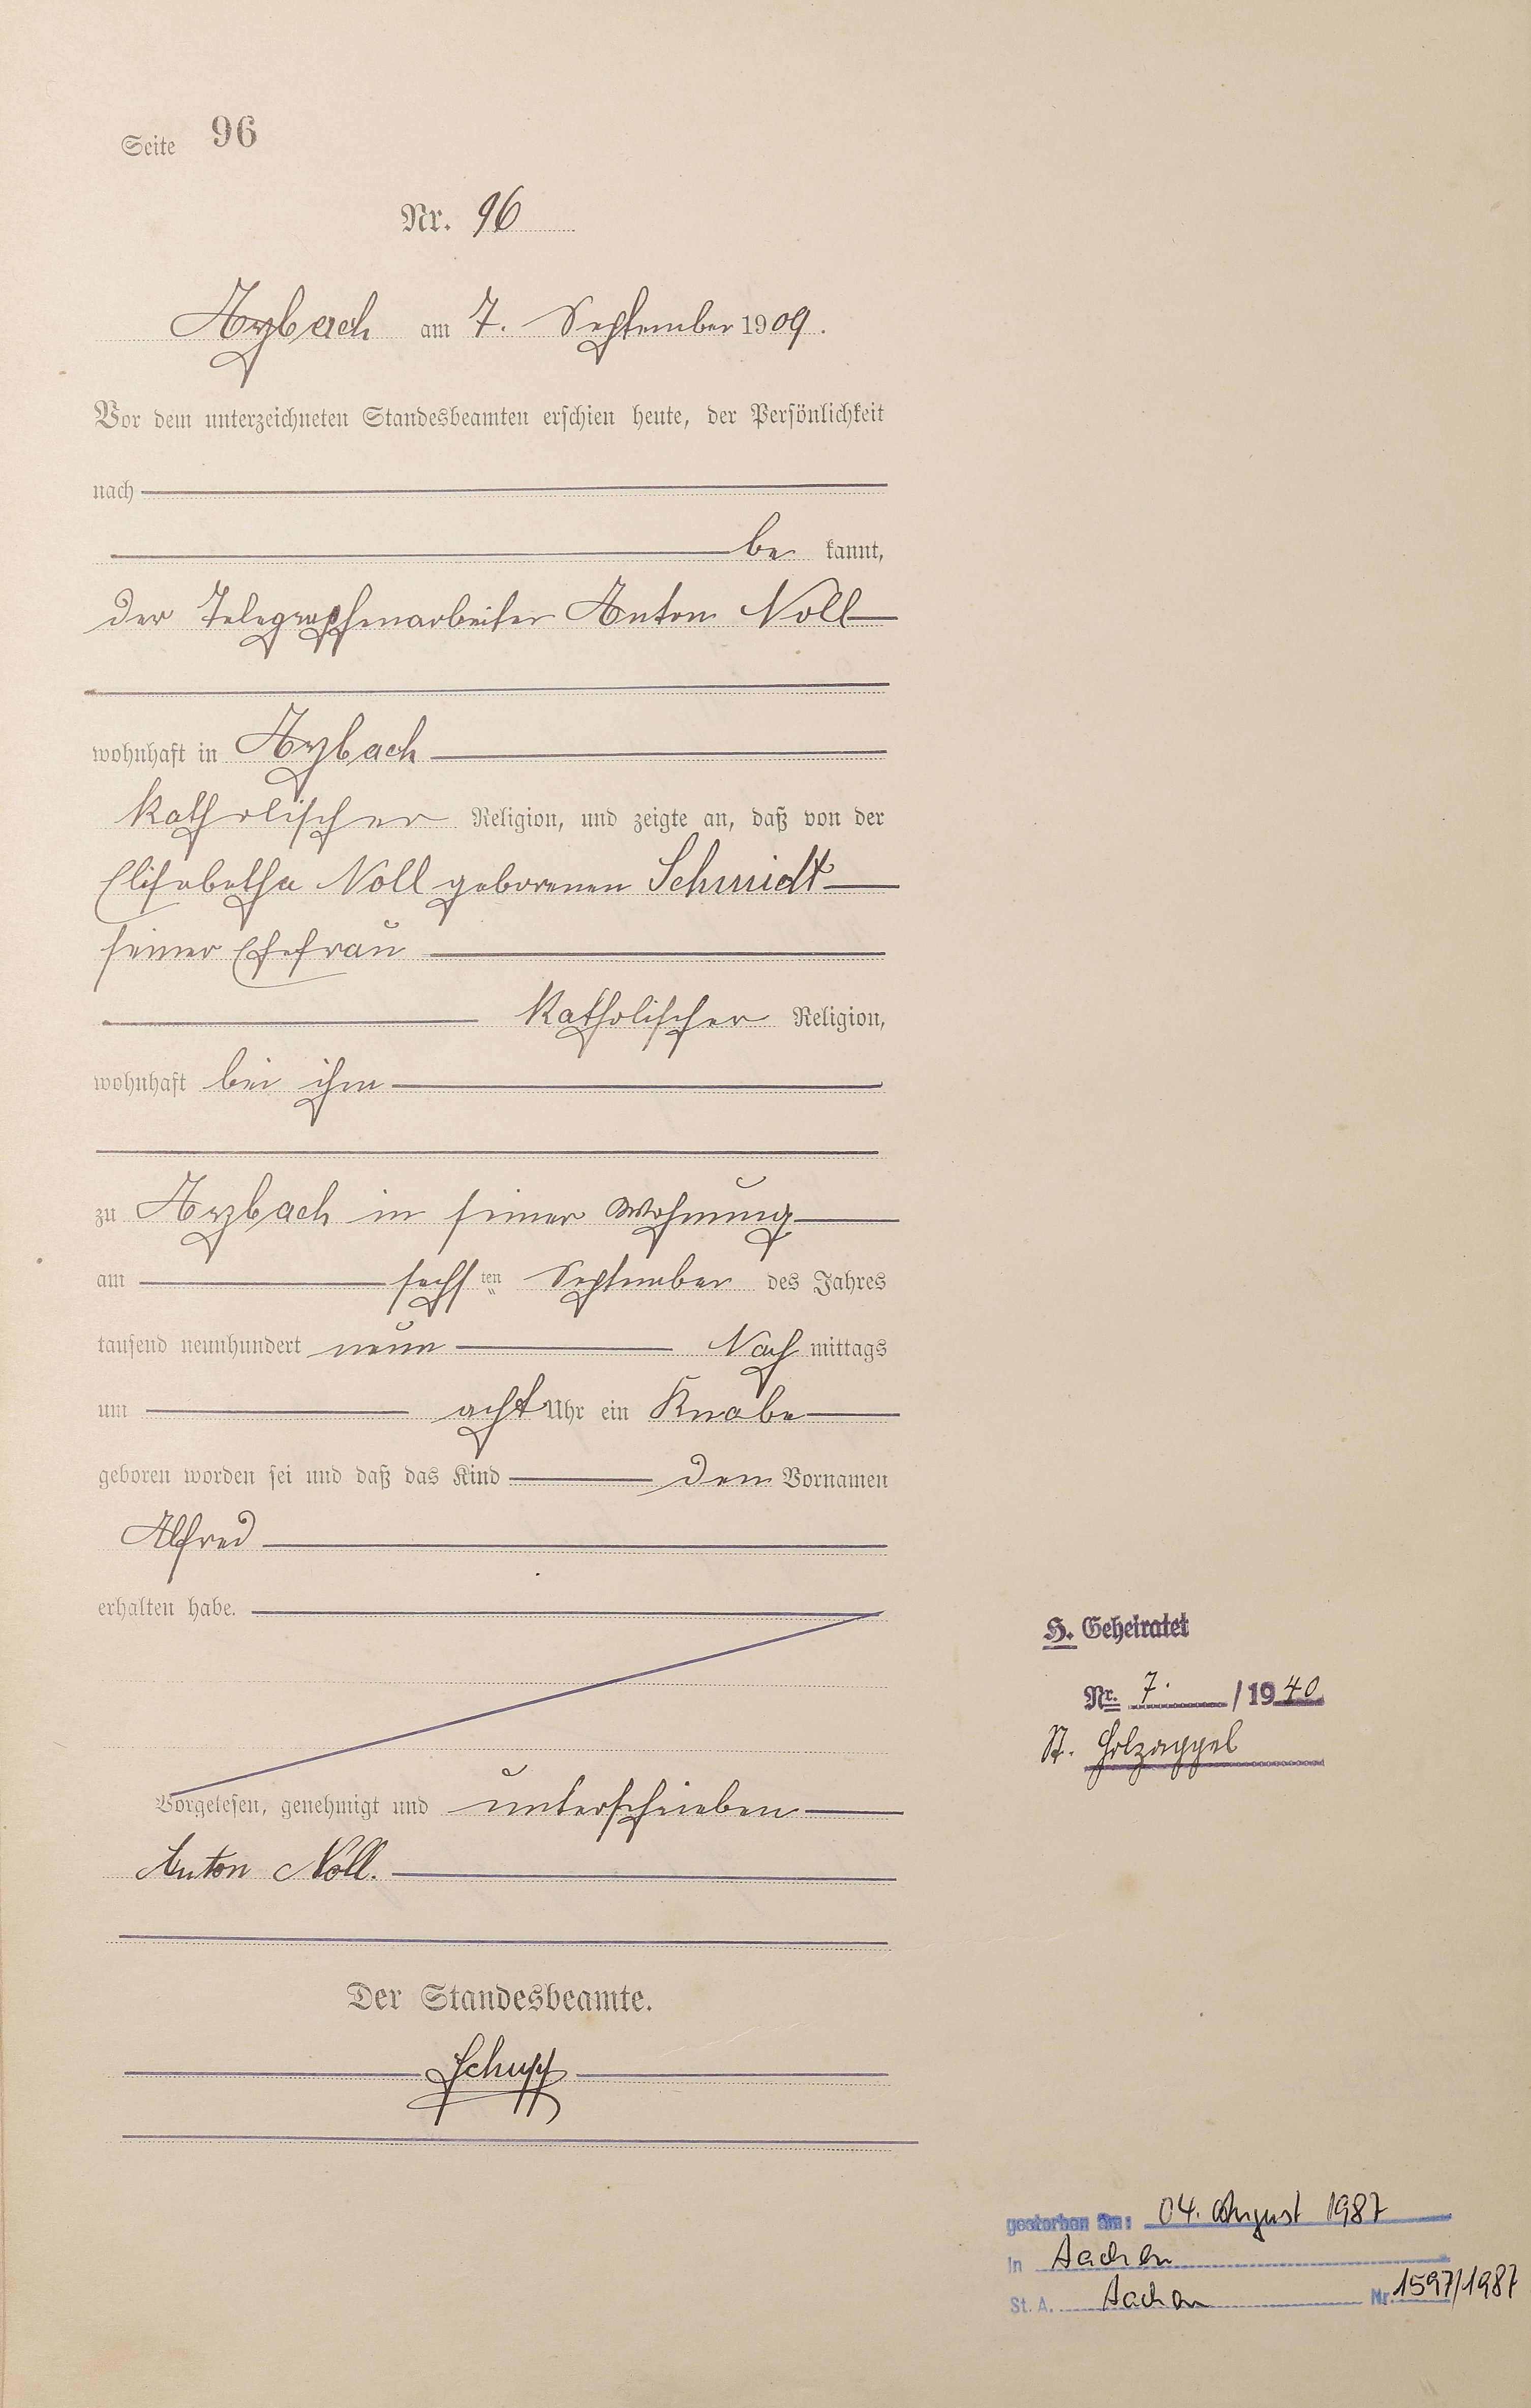 Seite 96
Nr. 96
Arzbach am 7. September 1909.
Vor dem unterzeichneten Standesbeamten erschien heute, der Persönlichkeit
nach
be kannt,
der Telegraphenarbeiter Anton Noll
wohnhaft in Arzbach
katholischer Religion, und zeigte an, daß von der
Elisabetha Noll geborenen Schmidt
seiner Ehefrau
katholischer Religion,
wohnhaft bei ihm
zu Arzbach in seiner Wohnung
am sechsten September des Jahres
tausend neunhundert neun Nach mittags
um acht Uhr ein Knabe
geboren worden sei und daß das Kind den Vornamen
Alfred
erhalten habe.
H. Geheiratet
Nr. 7. / 1940
St. Holzappel
Vorgelesen, genehmigt und unterschrieben
Anton Noll.
Der Standesbeamte.
Schupp
gestorben am: 04. August 1987
In Aachen
St. A. Aachen Nr. 1597/1987